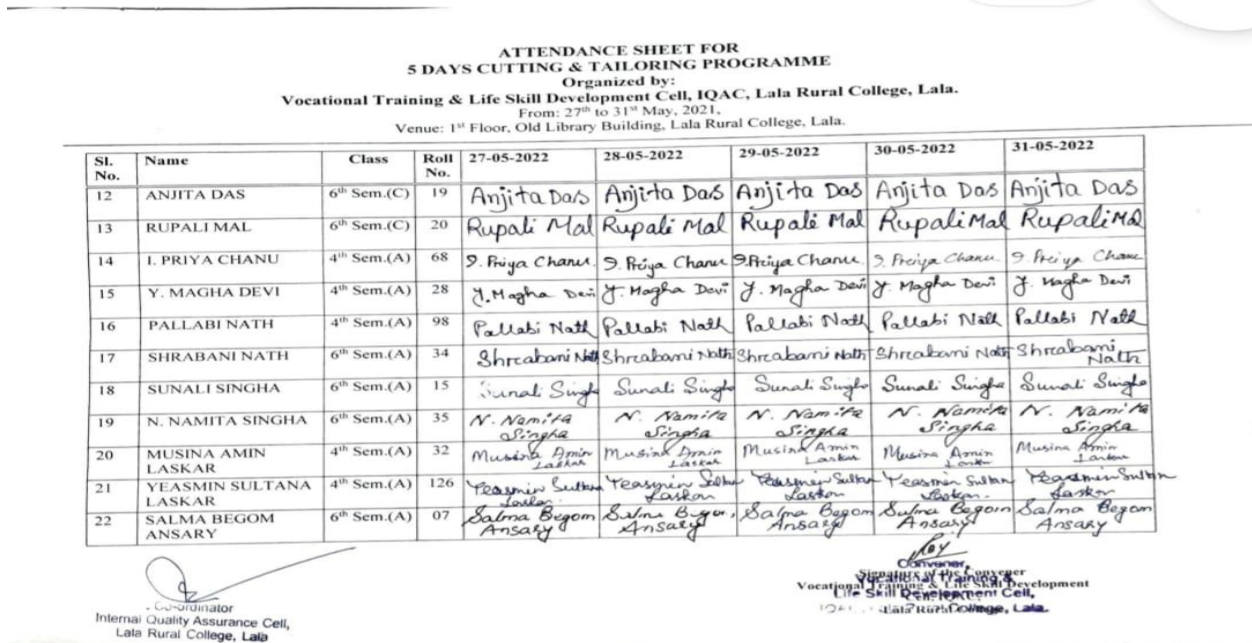 ATTENDANCE SHEET FOR
5 DAYS CUTTING & TAILORING PROGRAMME
Organized by:
Vocational Training & Life Skill Development Cell, IQAC, Lala Rural College, Lala.
From: 27th to 31st May, 2021,
Venue: 1st Floor, Old Library Building, Lala Rural College, Lala.
Sl. No. Name Class Roll No. 27-05-2022 28-05-2022 29-05-2022 30-05-2022 31-05-2022
12 ANJITA DAS 6th Sem.(C) 19 Anjita Das Anjita Das Anjita Das Anjita Das Anjita Das
13 RUPALI MAL 6th Sem.(C) 20 Rupali Mal Rupali Mal Rupali Mal Rupali Mal Rupali Mal
14 I. PRIYA CHANU 4th Sem.(A) 68 I. Priya Chanu I. Priya Chanu I. Priya Chanu I. Priya Chanu I. Priya Chanu
15 Y. MAGHA DEVI 4th Sem.(A) 28 Y. Magha Devi Y. Magha Devi Y. Magha Devi Y. Magha Devi Y. Magha Devi
16 PALLABI NATH 4th Sem.(A) 98 Pallabi Nath Pallabi Nath Pallabi Nath Pallabi Nath Pallabi Nath
17 SHRABANI NATH 6th Sem.(A) 34 Shreabani Nath Shreabani Nath Shreabani Nath Shreabani Nath Shreabani Nath
18 SUNALI SINGHA 6th Sem.(A) 15 Sunali Singha Sunali Singha Sunali Singha Sunali Singha Sunali Singha
19 N. NAMITA SINGHA 6th Sem.(A) 35 N. Namita Singha N. Namita Singha N. Namita Singha N. Namita Singha N. Namita Singha
20 MUSINA AMIN LASKAR 4th Sem.(A) 32 Musina Amin Laskar Musina Amin Laskar Musina Amin Laskar Musina Amin Laskar Musina Amin Laskar
21 YEASMIN SULTANA LASKAR 4th Sem.(A) 126 Yeasmin Sultan Laskar Yeasmin Sultan Laskar Yeasmin Sultan Laskar Yeasmin Sultan Laskar Yeasmin Sultan Laskar
22 SALMA BEGOM ANSARY 6th Sem.(A) 07 Salma Begom Ansary Salma Begom Ansary Salma Begom Ansary Salma Begom Ansary Salma Begom Ansary
Co-ordinator
Internal Quality Assurance Cell,
Lala Rural College, Lala
Convener,
Signature of the Convener
Vocational Training &
Vocational Training & Life Skill Development
Life Skill Development Cell,
Lala Rural College, Lala